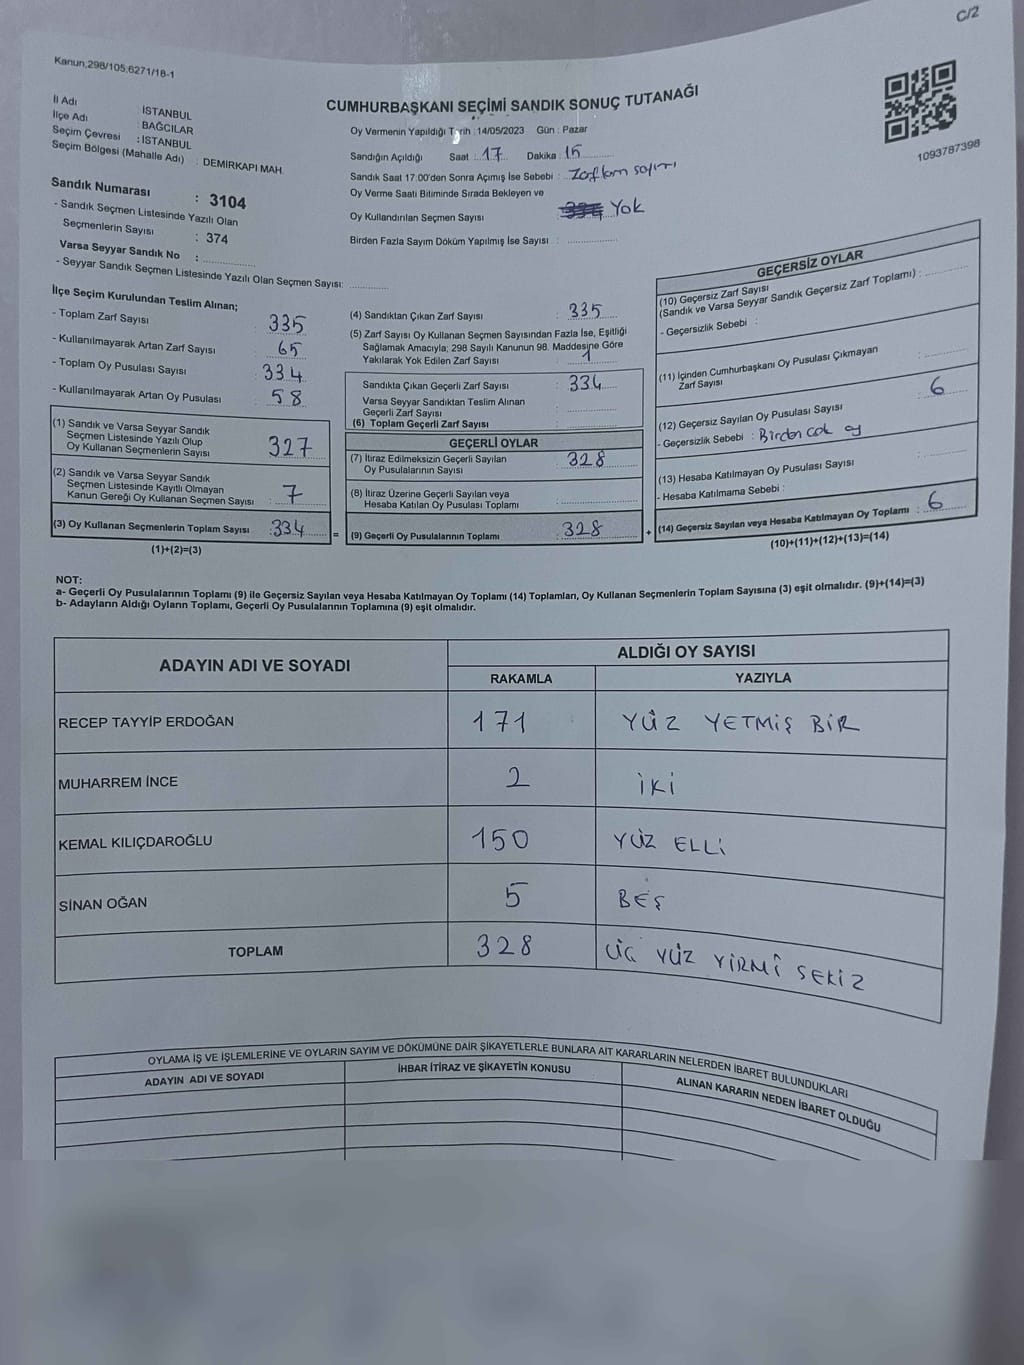 C/2
Kanun,298/105;6271/18-1
CUMHURBAŞKANI SEÇİMİ SANDIK SONUÇ TUTANAĞI
1093787398
İl Adı : İSTANBUL
İlçe Adı : BAĞCILAR
Seçim Çevresi : İSTANBUL
Seçim Bölgesi (Mahalle Adı) : DEMİRKAPI MAH.
Sandık Numarası : 3104
- Sandık Seçmen Listesinde Yazılı Olan
Seçmenlerin Sayısı : 374
Varsa Seyyar Sandık No :
- Seyyar Sandık Seçmen Listesinde Yazılı Olan Seçmen Sayısı:
Oy Vermenin Yapıldığı Tarih :14/05/2023 Gün : Pazar
Sandığın Açıldığı Saat : 17 Dakika : 15
Sandık Saat 17:00'den Sonra Açımış İse Sebebi : Zarfların sayımı
Oy Verme Saati Bitiminde Sırada Bekleyen ve
Oy Kullandırılan Seçmen Sayısı : Yok
Birden Fazla Sayım Döküm Yapılmış İse Sayısı :
İlçe Seçim Kurulundan Teslim Alınan;
- Toplam Zarf Sayısı : 335
- Kullanılmayarak Artan Zarf Sayısı : 65
- Toplam Oy Pusulası Sayısı : 334
- Kullanılmayarak Artan Oy Pusulası : 58
(1) Sandık ve Varsa Seyyar Sandık
Seçmen Listesinde Yazılı Olup
Oy Kullanan Seçmenlerin Sayısı : 327
(2) Sandık ve Varsa Seyyar Sandık
Seçmen Listesinde Kayıtlı Olmayan
Kanun Gereği Oy Kullanan Seçmen Sayısı : 7
(3) Oy Kullanan Seçmenlerin Toplam Sayısı : 334
(1)+(2)=(3)
(4) Sandıktan Çıkan Zarf Sayısı : 335
(5) Zarf Sayısı Oy Kullanan Seçmen Sayısından Fazla İse, Eşitliği
Sağlamak Amacıyla; 298 Sayılı Kanunun 98. Maddesine Göre
Yakılarak Yok Edilen Zarf Sayısı : 1
Sandıkta Çıkan Geçerli Zarf Sayısı : 334
Varsa Seyyar Sandıktan Teslim Alınan
Geçerli Zarf Sayısı :
(6) Toplam Geçerli Zarf Sayısı :
GEÇERLİ OYLAR
(7) İtiraz Edilmeksizin Geçerli Sayılan
Oy Pusulalarının Sayısı : 328
(8) İtiraz Üzerine Geçerli Sayılan veya
Hesaba Katılan Oy Pusulası Toplamı :
= (9) Geçerli Oy Pusulalarının Toplamı : 328 +
GEÇERSİZ OYLAR
(10) Geçersiz Zarf Sayısı
(Sandık ve Varsa Seyyar Sandık Geçersiz Zarf Toplamı) :
- Geçersizlik Sebebi :
(11) İçinden Cumhurbaşkanı Oy Pusulası Çıkmayan
Zarf Sayısı :
(12) Geçersiz Sayılan Oy Pusulası Sayısı : 6
- Geçersizlik Sebebi : Birden çok oy
(13) Hesaba Katılmayan Oy Pusulası Sayısı :
- Hesaba Katılmama Sebebi :
(14) Geçersiz Sayılan veya Hesaba Katılmayan Oy Toplamı : 6
(10)+(11)+(12)+(13)=(14)
NOT:
a- Geçerli Oy Pusulalarının Toplamı (9) ile Geçersiz Sayılan veya Hesaba Katılmayan Oy Toplamı (14) Toplamları, Oy Kullanan Seçmenlerin Toplam Sayısına (3) eşit olmalıdır. (9)+(14)=(3)
b- Adayların Aldığı Oyların Toplamı, Geçerli Oy Pusulalarının Toplamına (9) eşit olmalıdır.
ADAYIN ADI VE SOYADI ALDIĞI OY SAYISI
RAKAMLA YAZIYLA
RECEP TAYYİP ERDOĞAN 171 YÜZ YETMİŞ BİR
MUHARREM İNCE 2 İKİ
KEMAL KILIÇDAROĞLU 150 YÜZ ELLİ
SİNAN OĞAN 5 BEŞ
TOPLAM 328 ÜÇ YÜZ YİRMİ SEKİZ
OYLAMA İŞ VE İŞLEMLERİNE VE OYLARIN SAYIM VE DÖKÜMÜNE DAİR ŞİKAYETLERLE BUNLARA AİT KARARLARIN NELERDEN İBARET BULUNDUKLARI
ADAYIN ADI VE SOYADI İHBAR İTİRAZ VE ŞİKAYETİN KONUSU ALINAN KARARIN NEDEN İBARET OLDUĞU